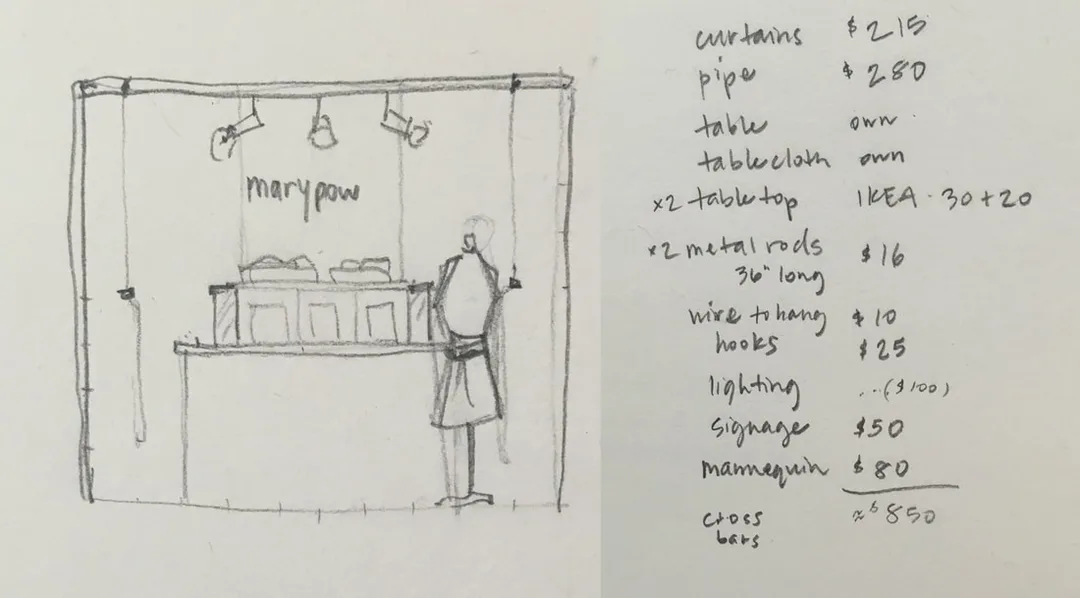 marypow
curtains $215
pipe $280
table own
tablecloth own
x2 tabletop IKEA · 30+20
x2 metal rods $16
36" long
wire to hang $10
hooks $25
lighting ...($100)
signage $50
mannequin $80
cross ≈$850
bars